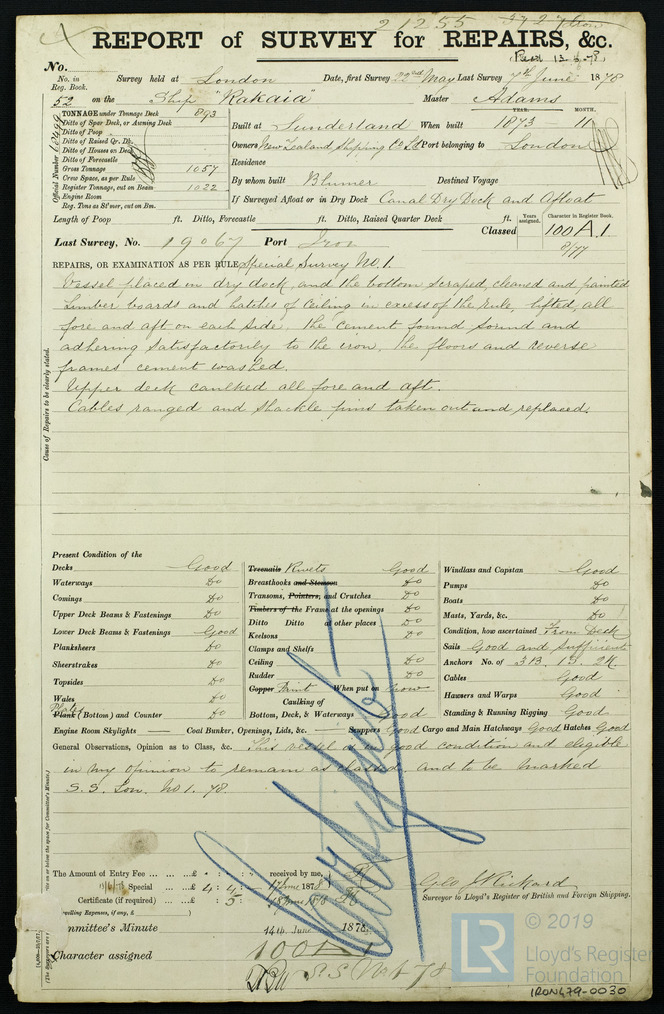 21255
REPORT of SURVEY for REPAIRS, &c.
No.
No. in Reg. Book. Survey held at London Date, first Survey 22nd May Last Survey 7th June 1878
52 on the Ship "Rakaia" Master Adams
TONNAGE under Tonnage Deck 893
Ditto of Spar Deck, or Awning Deck
Ditto of Poop
Ditto of Raised Qr. Dk.
Ditto of Houses on Deck
Ditto of Forecastle
Gross Tonnage 1057
Crew Space, as per Rule
Register Tonnage, cut on Beam 1022
Engine Room
Reg. Tons as St'mer, cut on Bm.
Official Number
YEAR. MONTH.
Built at Sunderland When built 1873 11
Owners New Zealand Shipping Co Ld Port belonging to London
Residence
By whom built Blumer Destined Voyage
If Surveyed Afloat or in Dry Dock Canal Dry Dock and Afloat
Length of Poop ft. Ditto, Forecastle ft. Ditto, Raised Quarter Deck ft.
Years assigned. Character in Register Book.
Classed 100 A.1
8/77
Last Survey, No. 19067 Port Iron
REPAIRS, OR EXAMINATION AS PER RULE Special Survey No. 1.
Vessel placed in dry dock, and the bottom scraped, cleaned and painted
Limber boards and hatches of Ceiling in excess of the rule, lifted, all
fore and aft on each side. The cement found sound and
adhering satisfactorily to the iron. The floors and reverse
frames cement washed.
Upper deck caulked all fore and aft.
Cables ranged and shackle pins taken out and replaced.
Cause of Repairs to be clearly stated.
Present Condition of the
Decks Good
Waterways Do
Comings Do
Upper Deck Beams & Fastenings Do
Lower Deck Beams & Fastenings Good
Planksheers Do
Sheerstrakes Do
Topsides Do
Wales Do
Plates
Plank (Bottom) and Counter Do
Treenails Rivets Good
Breasthooks and Stemson Do
Transoms, Pointers, and Crutches Do
Timbers of the Frame at the openings Do
Ditto Ditto at other places Do
Keelsons Do
Clamps and Shelfs
Ceiling Do
Rudder Do
Copper Paint When put on now
Caulking of
Bottom, Deck, & Waterways Good
Windlass and Capstan Good
Pumps Do
Boats Do
Masts, Yards, &c. Do
Condition, how ascertained From Deck
Sails Good and Sufficient
Anchors No. of 3B. 1S. 2K
Cables Good
Hawsers and Warps Good
Standing & Running Rigging Good
Engine Room Skylights — Coal Bunker, Openings, Lids, &c. — Scuppers Good Cargo and Main Hatchways Good Hatches Good
General Observations, Opinion as to Class, &c. This vessel is in good condition and eligible
in my opinion to remain as classed and to be marked
S.S. Lon. No 1. 78.
The Amount of Entry Fee ... £ : : received by me,
Special ... £ 4 : 4 : 17 June 1878
Certificate (if required) ... : 5 : 18 June 1878
Geo J Rickard
Surveyor to Lloyd's Register of British and Foreign Shipping.
Committee's Minute 14th June 1878
Character assigned 100 A 1
S.S. No 1 78
© 2019
LR
Lloyd's Register
Foundation
IRON479-0030